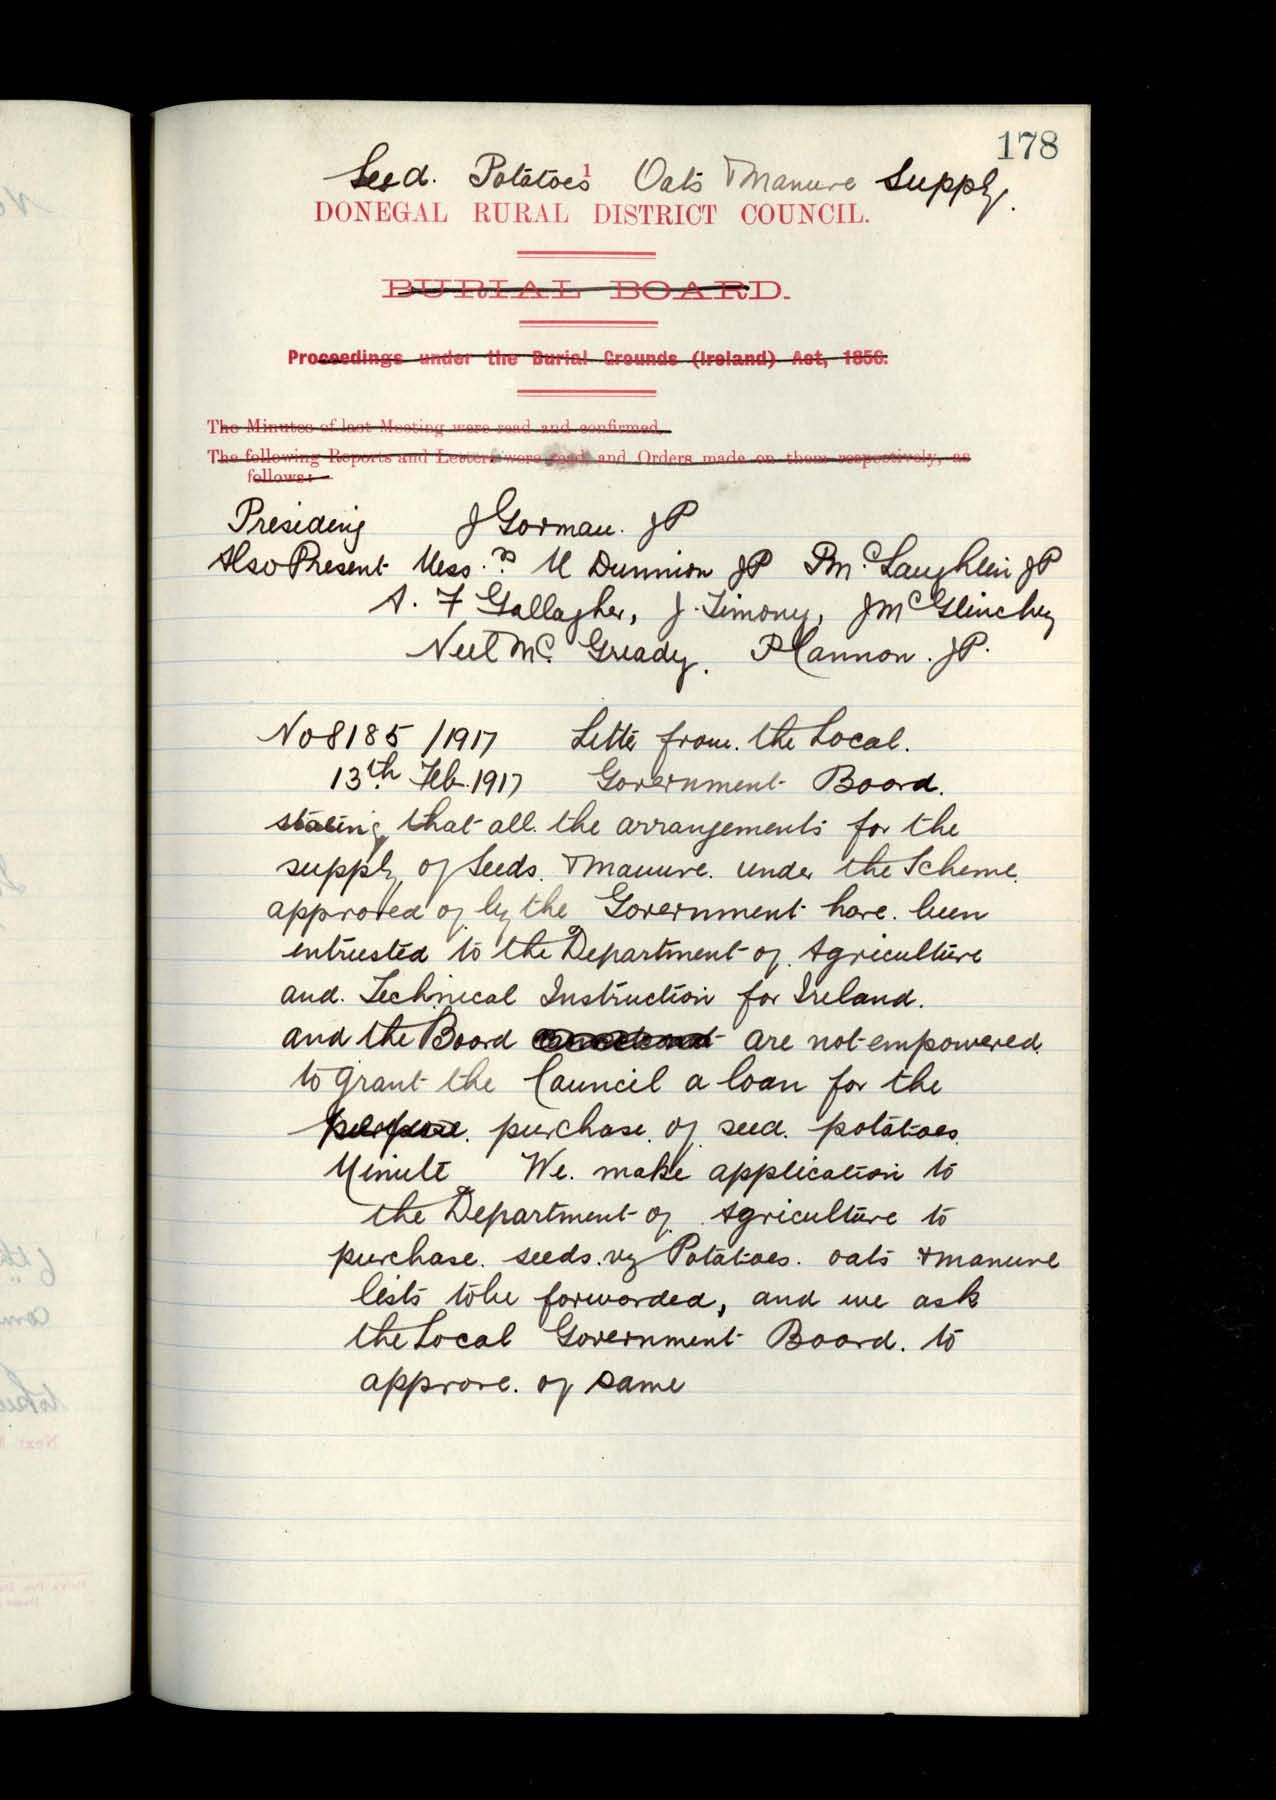 178
Seed. Potatoes 1 Oats & Manure Supply.
DONEGAL RURAL DISTRICT COUNCIL.
BURIAL BOARD.
Proceedings under the Burial Grounds (Ireland) Act, 1856.
The Minutes of last Meeting were read and confirmed.
The following Reports and Letters were read and Orders made on them respectively, as
follows:
Presiding J Gorman. JP
Also Present Mess.rs M Dunnion JP P McLaughlin JP
A. F Gallagher, J. Timony, J McGlinchey
Neil Mc. Gready. P Cannon. JP.
No 8185 /1917 Letter from. the Local.
13th Feb. 1917 Government Board.
stating that all. the arrangements for the
supply of Seeds. & Manure. under the Scheme.
approved of by the Government have. been
entrusted to the Department of. Agriculture
and. Technical Instruction for Ireland.
and the Board are not empowered.
to grant the Council a loan for the
purchase. of. seed. potatoes.
Minute We. make application to
the Department of. Agriculture to
purchase. seeds. viz Potatoes. oats & manure
lists to be forwarded, and we ask
the Local Government Board. to
approve. of same